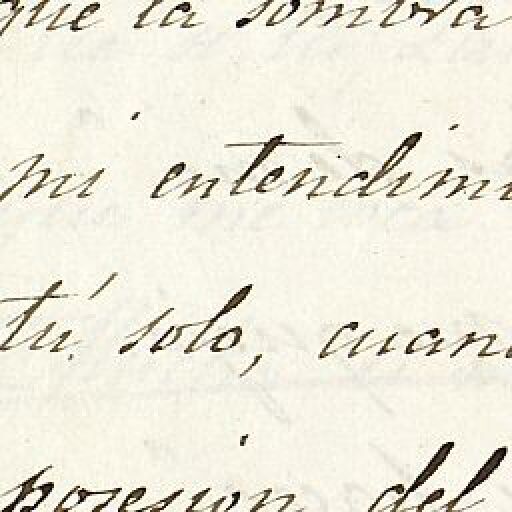 que la sombra
mi entendimi
tú solo, cuan
posesion del